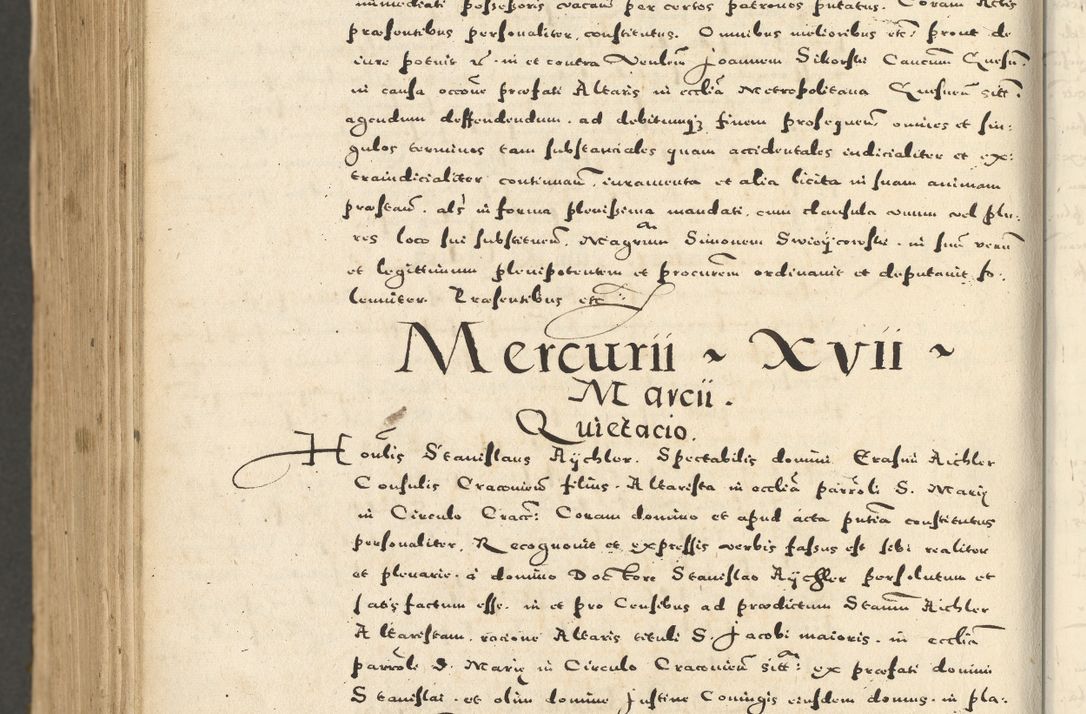 immediati possessoris vacan̄ per certos patronos p̄ntatus. Coram Actis
præsentibus personaliter constitutus. Omnibus melioribus etc: prout de
iure potuit in et contra Venlem̄ Joannem Sikorski Canc̄um Gnesn̄:
in causa occōne præfati Altaris in eccliā Metropolitana Gnesnen̄ sitt:
agendum deffendendum. ad debitumqʒ finem prosequen̄ omnes et sin:
gulos terminos tam substanciales quam accidentales iudicialiter et ex:
traiudicialiter continuan̄, iuramenta et alia licita in suam animam
præstan̄. als in forma plenissima mandati, cum clausula unum vel plu:
res loco sui substituen̄. Magrum Simonem in suū verū
et legittimum plenipotentem et procurem̄ ordinauit et deputauit so:
lemniter. Præsentibus etc:
Mercurii ~ Xvii ~
Marcii.
Quietacio.
Honlis Stanislaus Aychler. Spectabilis domini Erasmi Aichler
Consulis Cracouien̄ filius. Altarista in eccliā parrōli S. Marię
in Circulo Cracc: Coram domino et apud acta p̄ntia constitutus
personaliter, Recognouit et expressis verbis fassus est sibi realiter
et plenarie. à domino Doctore Stanislao Aychler persolutum et
satisfactum esse. in et pro Censibus ad prædictum Stanm̄ Aichler
Altaristam. racione Altaris tituli S. Jacobi maioris. in eccliā
parrōli S. Marię in Circulo Cracouien̄ sitt: ex præfati domini
Stanislai. et olim domine Justine Coniugis eiusdem domus. in pla: